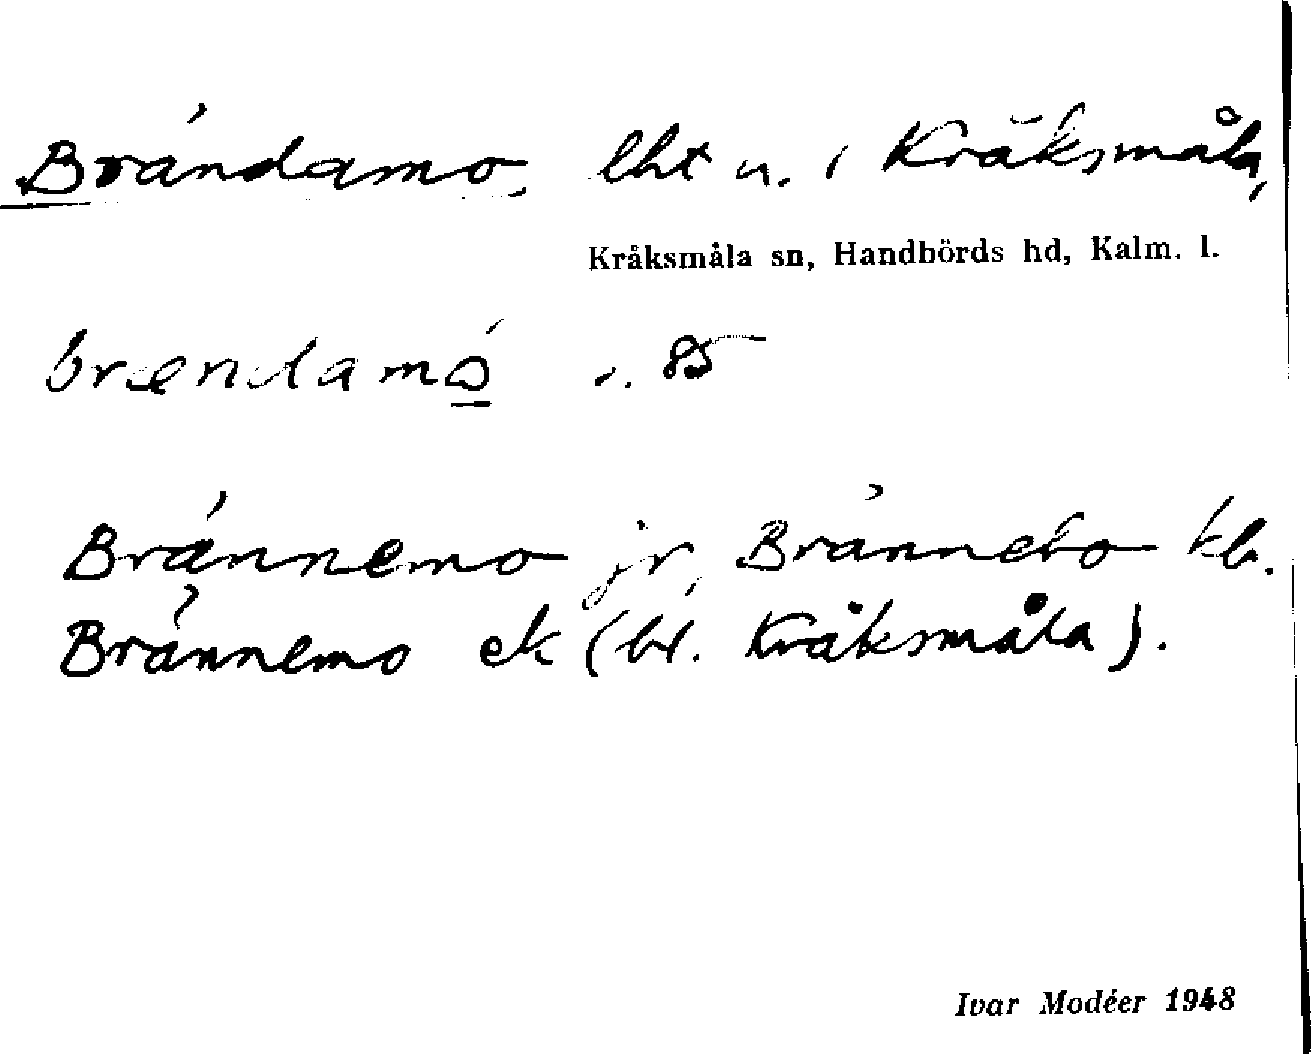 Brändamo, lht u. i Kråksmåla,
Kråksmåla sn, Handbörds hd, Kalm. l.
brændamó s. 85
Brännemo jr, Brännebo kb.
Brännemo ek (bl. Kråksmåla).
Ivar Modéer 1948